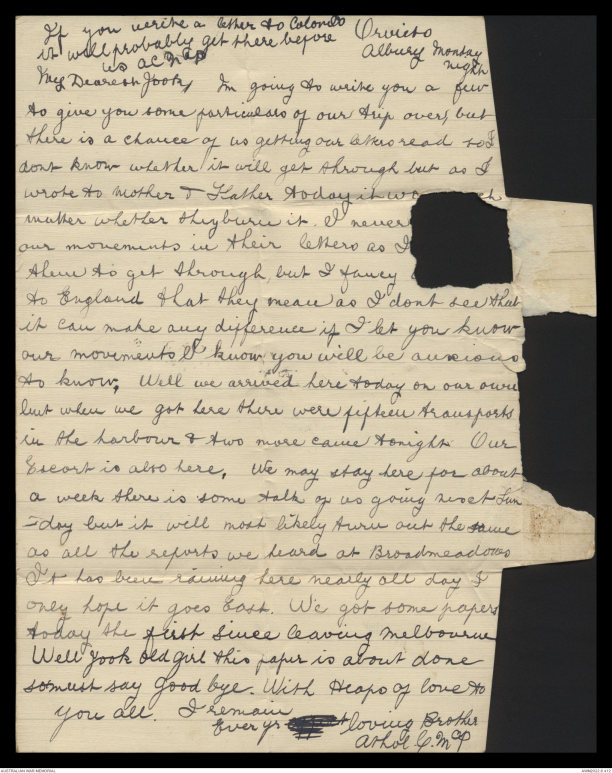 If you write a letter to Colombo
it will probably get there before
us A C McP
Orvieto
Albury Monday
night
My Dearest Jook, Im going to write you a few
to give you some particulars of our trip over, but
there is a chance of us getting our letters read so I
dont know whether it will get through but as I
wrote to Mother & Father today it
matter whether they burn it. I never
our movements in their letters as I
them to get through, but I fancy
to England that they mean as I dont see that
it can make any difference if I let you know
our movements & I know you will be anxious
to know, Well we arrived here today on our own
but when we got here there were fifteen transports
in the harbour & two more came tonight. Our
Escort is also here, We may stay here for about
a week there is some talk of us going next Sun
-day but it will most likely turn out the same
as all the reports we heard at Broadmeadows
It has been raining here nearly all day I
only hope it goes East. We got some papers
today the first since leaving Melbourne
Well Jook old girl this paper is about done
so must say good bye. With Heaps of love to
you all. I remain
Ever yr loving Brother
Athol C. McP
AUSTRALIAN WAR MEMORIAL